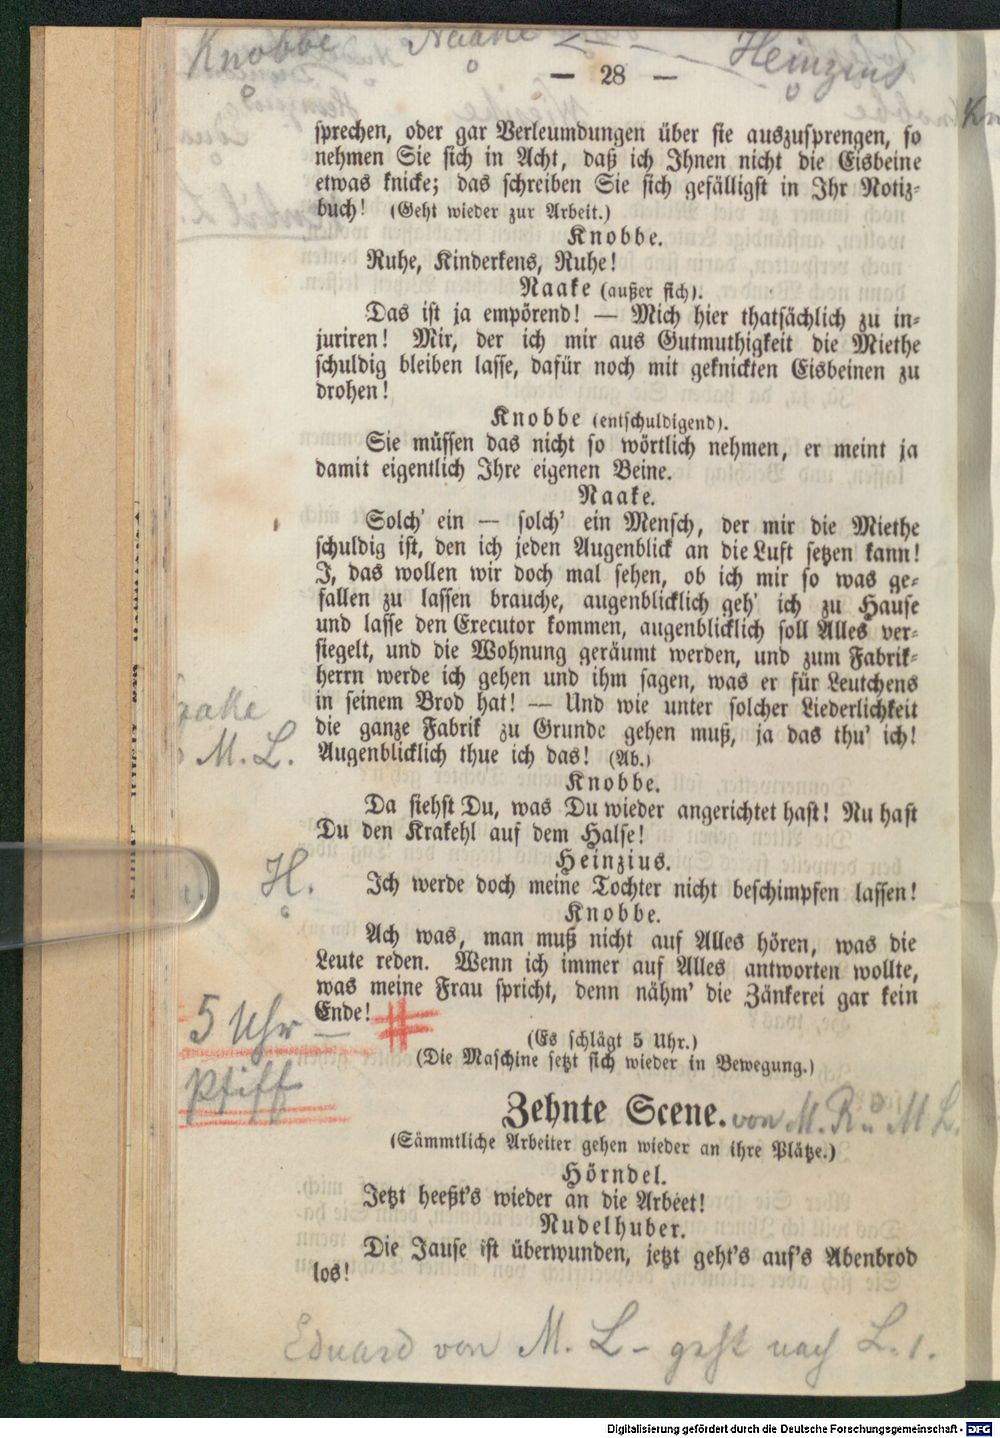 Knobbe Naake Heinzius
— 28 —
sprechen, oder gar Verleumdungen über sie auszusprengen, so
nehmen Sie sich in Acht, daß ich Ihnen nicht die Eisbeine
etwas knicke; das schreiben Sie sich gefälligst in Ihr Notiz-
buch! (Geht wieder zur Arbeit.)
Knobbe.
Ruhe, Kinderkens, Ruhe!
Naake (außer sich).
Das ist ja empörend! — Mich hier thatsächlich zu in-
juriren! Mir, der ich mir aus Gutmuthigkeit die Miethe
schuldig bleiben lasse, dafür noch mit geknickten Eisbeinen zu
drohen!
Knobbe (entschuldigend).
Sie müssen das nicht so wörtlich nehmen, er meint ja
damit eigentlich Ihre eigenen Beine.
Naake.
Solch' ein — solch' ein Mensch, der mir die Miethe
schuldig ist, den ich jeden Augenblick an die Luft setzen kann!
I, das wollen wir doch mal sehen, ob ich mir so was ge-
fallen zu lassen brauche, augenblicklich geh' ich zu Hause
und lasse den Executor kommen, augenblicklich soll Alles ver-
siegelt, und die Wohnung geräumt werden, und zum Fabrik-
herrn werde ich gehen und ihm sagen, was er für Leutchens
in seinem Brod hat! — Und wie unter solcher Liederlichkeit
die ganze Fabrik zu Grunde gehen muß, ja das thu' ich!
Augenblicklich thue ich das! (Ab.)
Naake
M. L.
Knobbe.
Da siehst Du, was Du wieder angerichtet hast! Nu hast
Du den Krakehl auf dem Halse!
Heinzius.
H.
Ich werde doch meine Tochter nicht beschimpfen lassen!
Knobbe.
Ach was, man muß nicht auf Alles hören, was die
Leute reden. Wenn ich immer auf Alles antworten wollte,
was meine Frau spricht, denn nähm' die Zänkerei gar kein
Ende!
5 Uhr —
Pfiff
(Es schlägt 5 Uhr.)
(Die Maschine setzt sich wieder in Bewegung.)
Zehnte Scene. von M. R u M L.
(Sämmtliche Arbeiter gehen wieder an ihre Plätze.)
Hörndel.
Jetzt heeßt's wieder an die Arbeet!
Nudelhuber.
Die Jause ist überwunden, jetzt geht's auf's Abenbrod
los!
Eduard von M. L – geht nach L. 1.
Digitalisierung gefördert durch die Deutsche Forschungsgemeinschaft - DFG